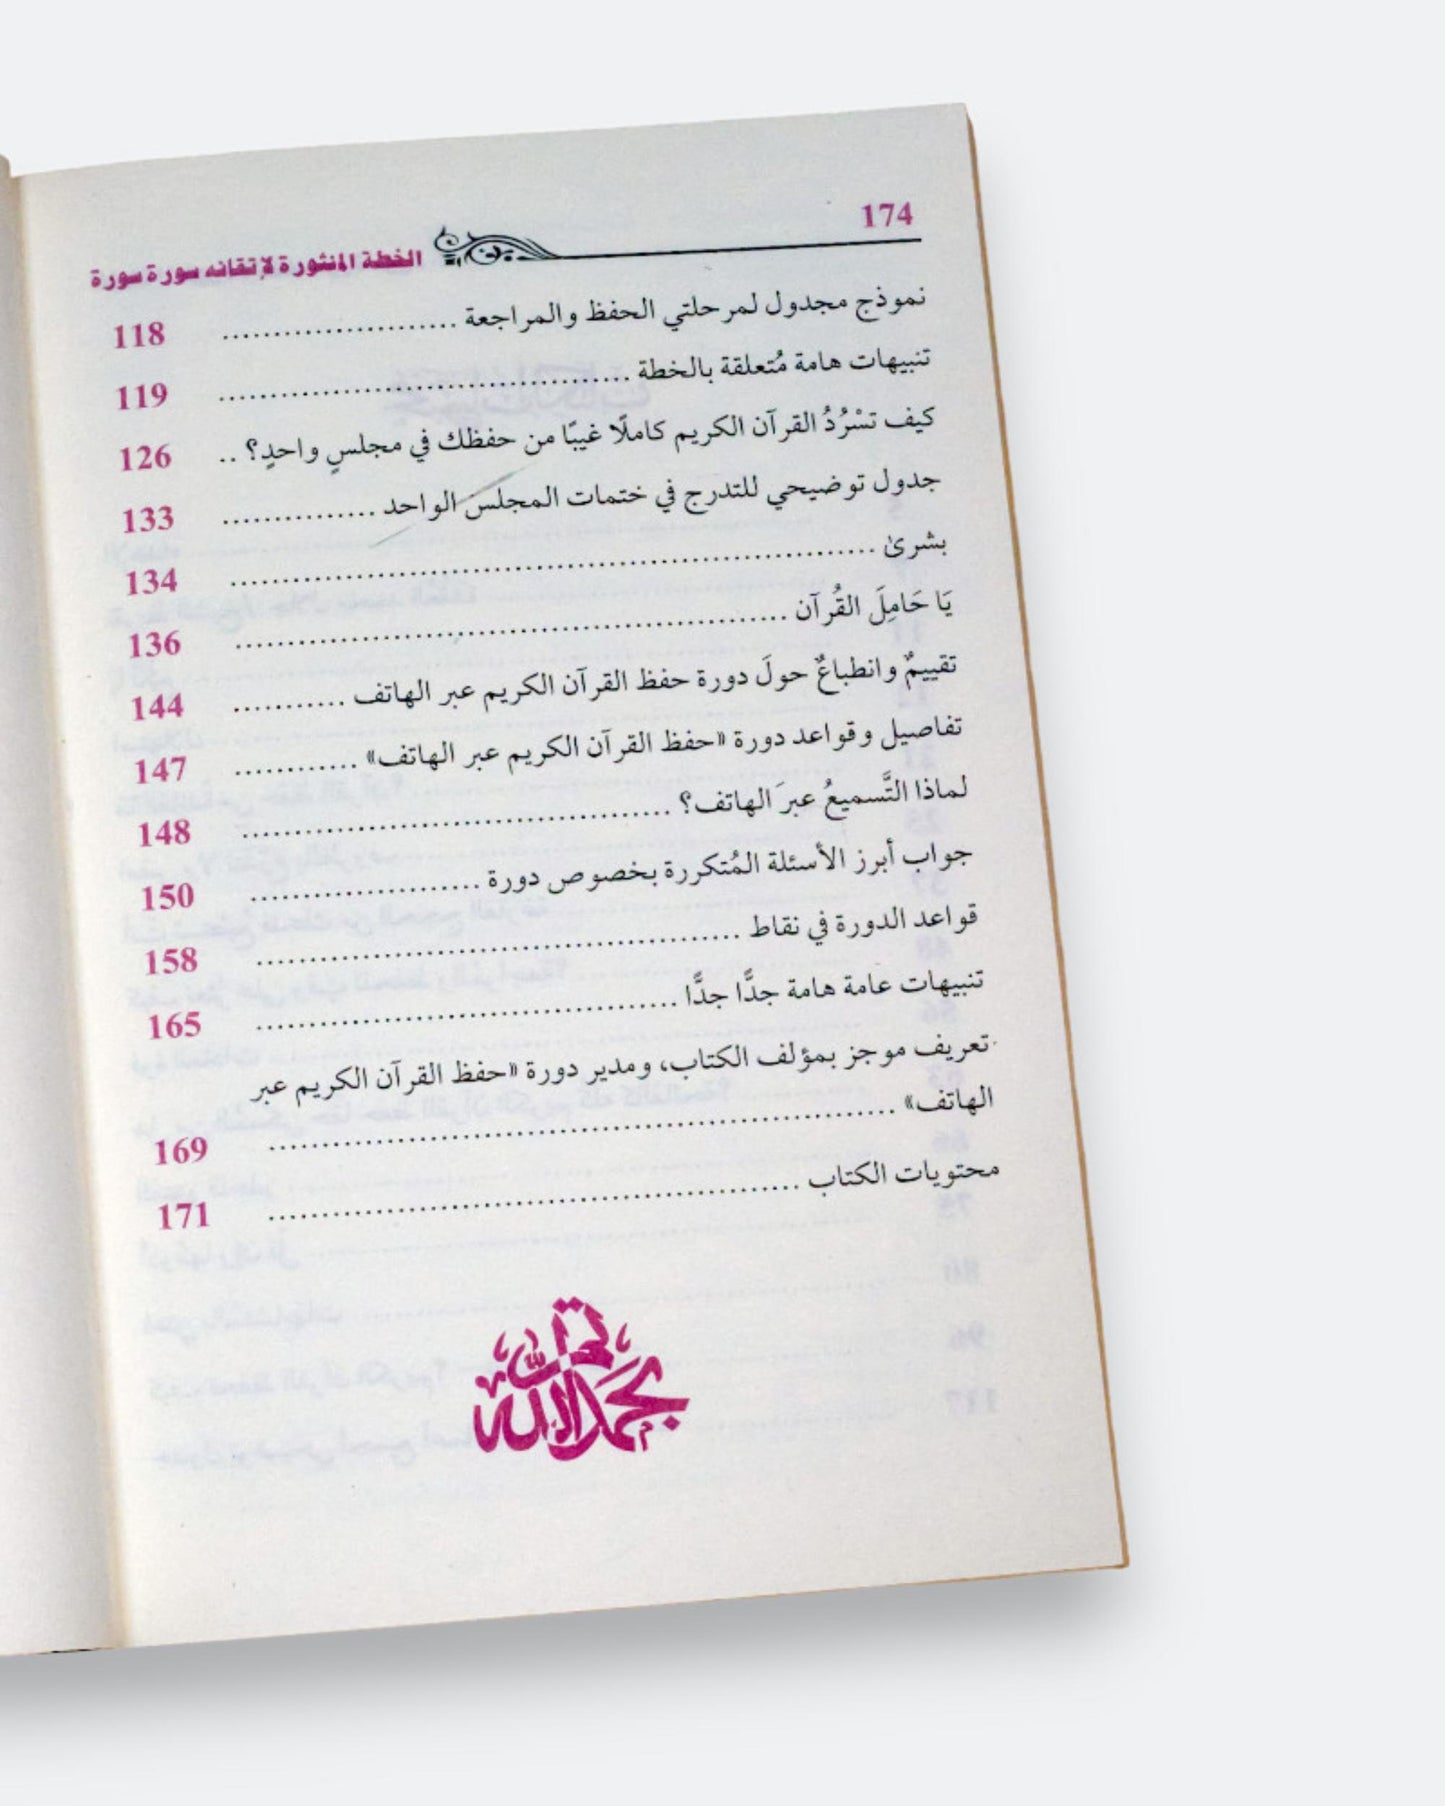 174
الخطة المنثورة لإتقانه سورة سورة
نموذج مجدول لمرحلتي الحفظ والمراجعة ....................... 118
تنبيهات هامة مُتعلقة بالخطة ........................................ 119
كيف تسْرُدُ القرآن الكريم كاملًا غيبًا من حفظك في مجلسٍ واحدٍ؟ .. 126
جدول توضيحي للتدرج في ختمات المجلس الواحد ............... 133
بشرىٰ ............................................................... 134
يَا حَامِلَ القُرآن ...................................................... 136
تقييمٌ وانطباعٌ حولَ دورة حفظ القرآن الكريم عبر الهاتف ........... 144
تفاصيل وقواعد دورة «حفظ القرآن الكريم عبر الهاتف» ............ 147
لماذا التَّسميعُ عبرَ الهاتف؟ .......................................... 148
جواب أبرز الأسئلة المُتكررة بخصوص دورة ....................... 150
قواعد الدورة في نقاط ............................................... 158
تنبيهات عامة هامة جدًّا جدًّا ......................................... 165
تعريف موجز بمؤلف الكتاب، ومدير دورة «حفظ القرآن الكريم عبر
الهاتف» ............................................................. 169
محتويات الكتاب .................................................... 171
تم بحمد الله